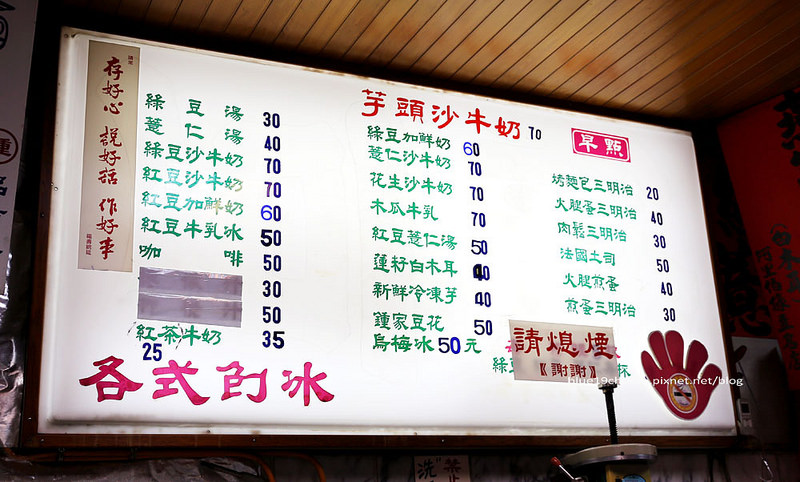 請常
存好心 說好話 作好事
綠豆湯 30
薏仁湯 40
綠豆沙牛奶 70
紅豆沙牛奶 70
紅豆加鮮奶 60
紅豆牛乳冰 50
咖啡 50
30
50
紅茶牛奶 35
25
各式刨冰
芋頭沙牛奶 70
綠豆加鮮奶 60
薏仁沙牛奶 70
花生沙牛奶 70
木瓜牛乳 70
紅豆薏仁湯 50
蓮籽白木耳 40
新鮮冷凍芋 40
鍾家豆花 50
烏梅冰50元
早點
烤麵包三明治 20
火腿蛋三明治 40
肉鬆三明治 30
法國土司 50
火腿煎蛋 40
煎蛋三明治 30
請熄煙
《謝謝》
綠豆
杯
pixnet.net/blog
洗
禁止